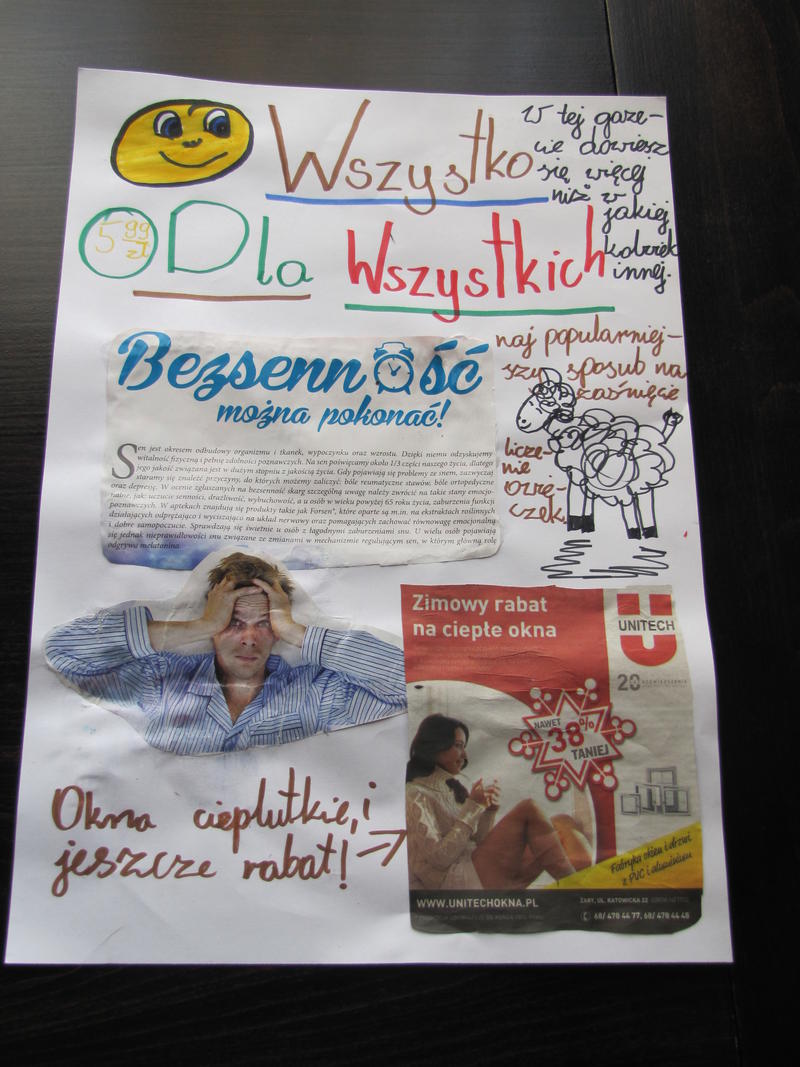 Wszystko
5 99 zł
Dla Wszystkich
W tej gaze-
cie dowiesz
się więcej
niż w
jakiej
kolwiek
innej.
Bezsenność
można pokonać!
Sen jest okresem odbudowy organizmu i tkanek, wypoczynku oraz wzrostu. Dzięki niemu odzyskujemy
witalność fizyczną i pełnię zdolności poznawczych. Na sen poświęcamy około 1/3 części naszego życia, dlatego
jego jakość związana jest w dużym stopniu z jakością życia. Gdy pojawiają się problemy ze snem, zazwyczaj
staramy się znaleźć przyczyny, do których możemy zaliczyć: bóle reumatyczne stawów, bóle ortopedyczne
oraz depresję. W ocenie zgłaszanych na bezsenność skarg szczególną uwagę należy zwrócić na takie stany emocjo-
nalne, jak: uczucie senności, drażliwość, wybuchowość, a u osób w wieku powyżej 65 roku życia, zaburzenia funkcji
poznawczych. W aptekach znajdują się produkty takie jak Forsen*, które oparte są m.in. na ekstraktach roślinnych
działających odprężająco i wyciszająco na układ nerwowy oraz pomagających zachować równowagę emocjonalną
i dobre samopoczucie. Sprawdzają się świetnie u osób z łagodnymi zaburzeniami snu. U wielu osób pojawiają
się jednak nieprawidłowości snu związane ze zmianami w mechanizmie regulującym sen, w którym główną rolę
odgrywa melatonina.
naj popularniej-
szy sposub na
zaśnięcie
licze-
nie
owie-
czek
Zimowy rabat
na ciepłe okna
UNITECH
20
NAWET
38%
TANIEJ
Fabryka okien i drzwi
z PVC i aluminium
WWW.UNITECHOKNA.PL
ŻARY, UL. KATOWICKA 22
68/ 478 44 77, 68/ 478 44 48
Okna cieplutkie, i
jeszcze rabat! →